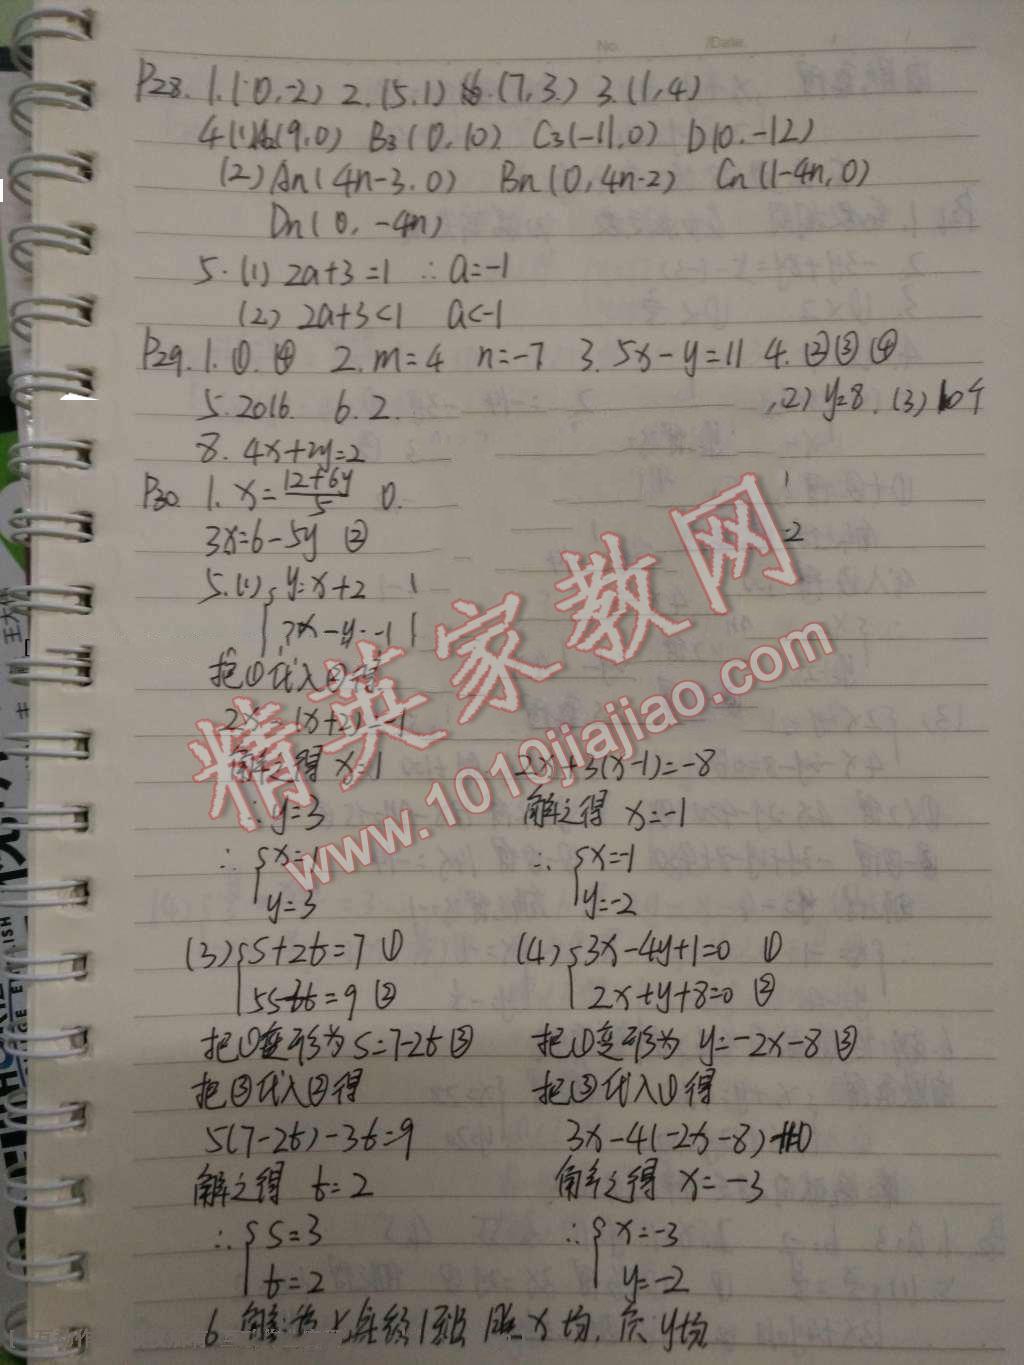 No. /Date.
P28. 1. (0,-2) 2. (5,1) (7,3) 3. (1,4)
4 (1) (9,0) B3(0,10) C3(-11,0) D(0,-12)
(2) An(4n-3,0) Bn(0,4n-2) Cn(1-4n,0)
Dn(0,-4n)
5. (1) 2a+3=1 ∴a=-1
(2) 2a+3<1 a<-1
P29. 1. ①.④ 2. m=4 n=-7 3. 5x-y=11 4. ②③④
5. 2016. 6. 2. (2) y=8. (3) 10个
8. 4x+2y=2
P30. 1. x=(12+6y)/5 0.
3x=6-5y ②
=2
5. (1) { y=x+2
x-y=-1
把①代入②得
2x-(x+2)=-1
解之得 x=1 2x+3(x-1)=-8
∴y=3 解之得 x=-1
∴ { x=1 ∴ { x=-1
y=3 y=-2
(3) { s+2t=7 ① (4) { 3x-4y+1=0 ①
5s-3t=9 ② 2x+y+8=0 ②
把①变形为 s=7-2t ③ 把①变形为 y=-2x-8 ③
把③代入②得 把③代入①得
5(7-2t)-3t=9 3x-4(-2x-8)
解之得 t=2 解之得 x=-3
∴ { s=3 ∴ { x=-3
t=2 y=-2
6. 解
精英家教网
www.1010jiajiao.com